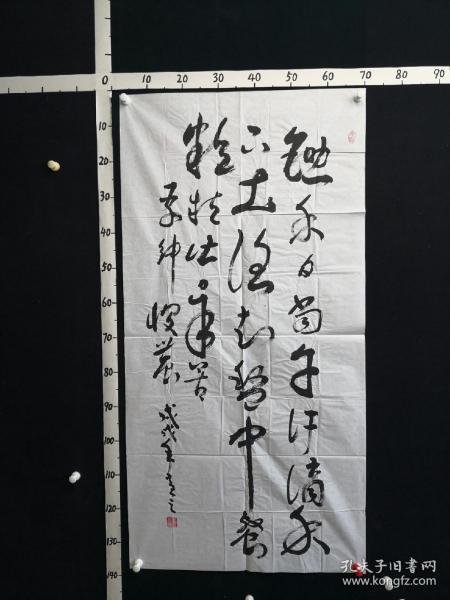 0 10 20 30 40 50 60 70 80 90
10
20
30
40
50
60
70
80
90
100
110
120
130
140
锄禾日當午汗滴禾
下土谁知盤中餐
粒粒皆辛苦
李绅 悯農 戊戌年
孔夫子旧书网
www.kongfz.com